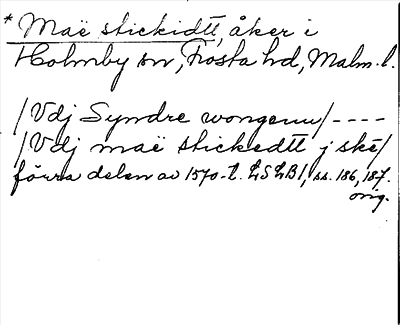 * Maë stickidtt, åker i
Holmby sn, Frosta hd, Malm. l.
/Vdj Syndre wongenn/ ----
/Vdj maë stickedtt j ské/
förra delen av 1570-t. LSLB1, ss. 186, 187.
orig.